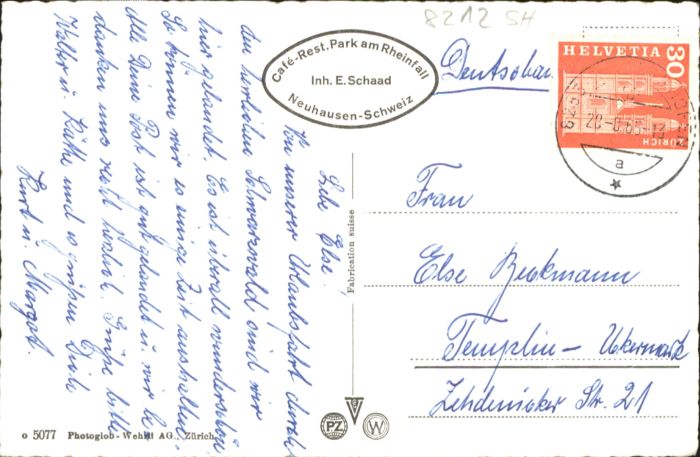 8212 SH
Café-Rest. Park am Rheinfall
Inh. E. Schaad
Neuhausen-Schweiz
HELVETIA
30
ZÜRICH
a
Liebe Else!
Von unserer Urlaubsfahrt durch
den herrlichen Schwarzwald sind wir
hier gelandet. Es ist überall wunderschön
So können wir es einige Zeit aushalten.
Alle Deine Post ist gut gelandet u. wir be
danken uns recht herzlich. Grüße bitte
Walter u. Käthe und es grüßen Dich
Kurt u. Margot.
Fabrication suisse
Frau
Else Beckmann
Templin - Uckermark
Zehdenicker Str. 21
o 5077 Photoglob-Wehrli AG., Zürich
PZ
W